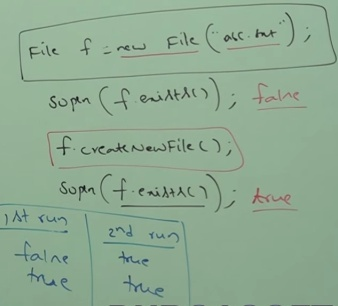 File f = new File ("abc.txt");
Sopln (f.exists()); false
f.createNewFile();
Sopln (f.exists()); true
1st run 2nd run
false true
true true